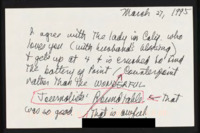 March 27, 1995
I agree with the lady in Calif who
loves you (with husband's blessing)
& gets up at 4 & is crushed to find
the battery of Point / Counterpoint
rather than the WONDERFUL
Journalists' Roundtable - that
was so good. That is awful